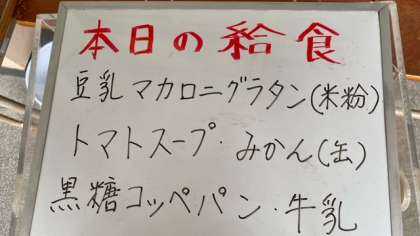 本日の給食
豆乳マカロニグラタン(米粉)
トマトスープ・みかん(缶)
黒糖コッペパン・牛乳